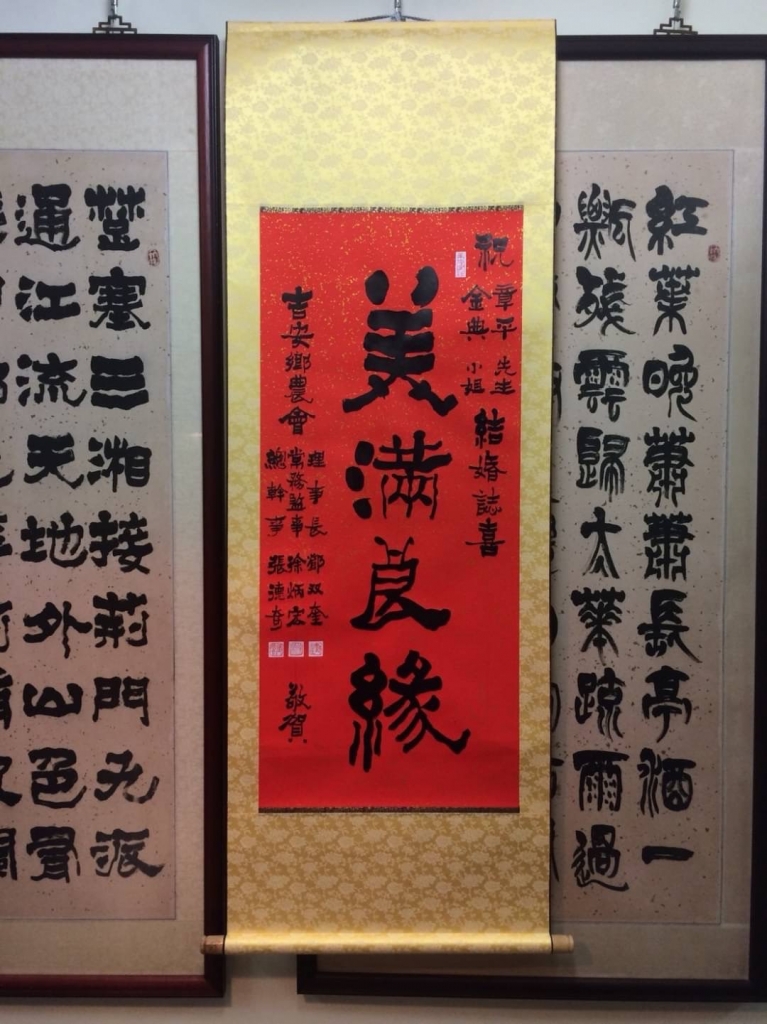 紅葉晚蕭蕭長亭酒一
瓢殘雲歸太華疏雨過
祝
章平 先生
金典 小姐
結婚誌喜
美滿良緣
吉安鄉農會
理事長 鄧双奎
常務監事 徐炳宏
總幹事 張德奇
敬賀
楚塞三湘接荊門九派
通江流天地外山色有